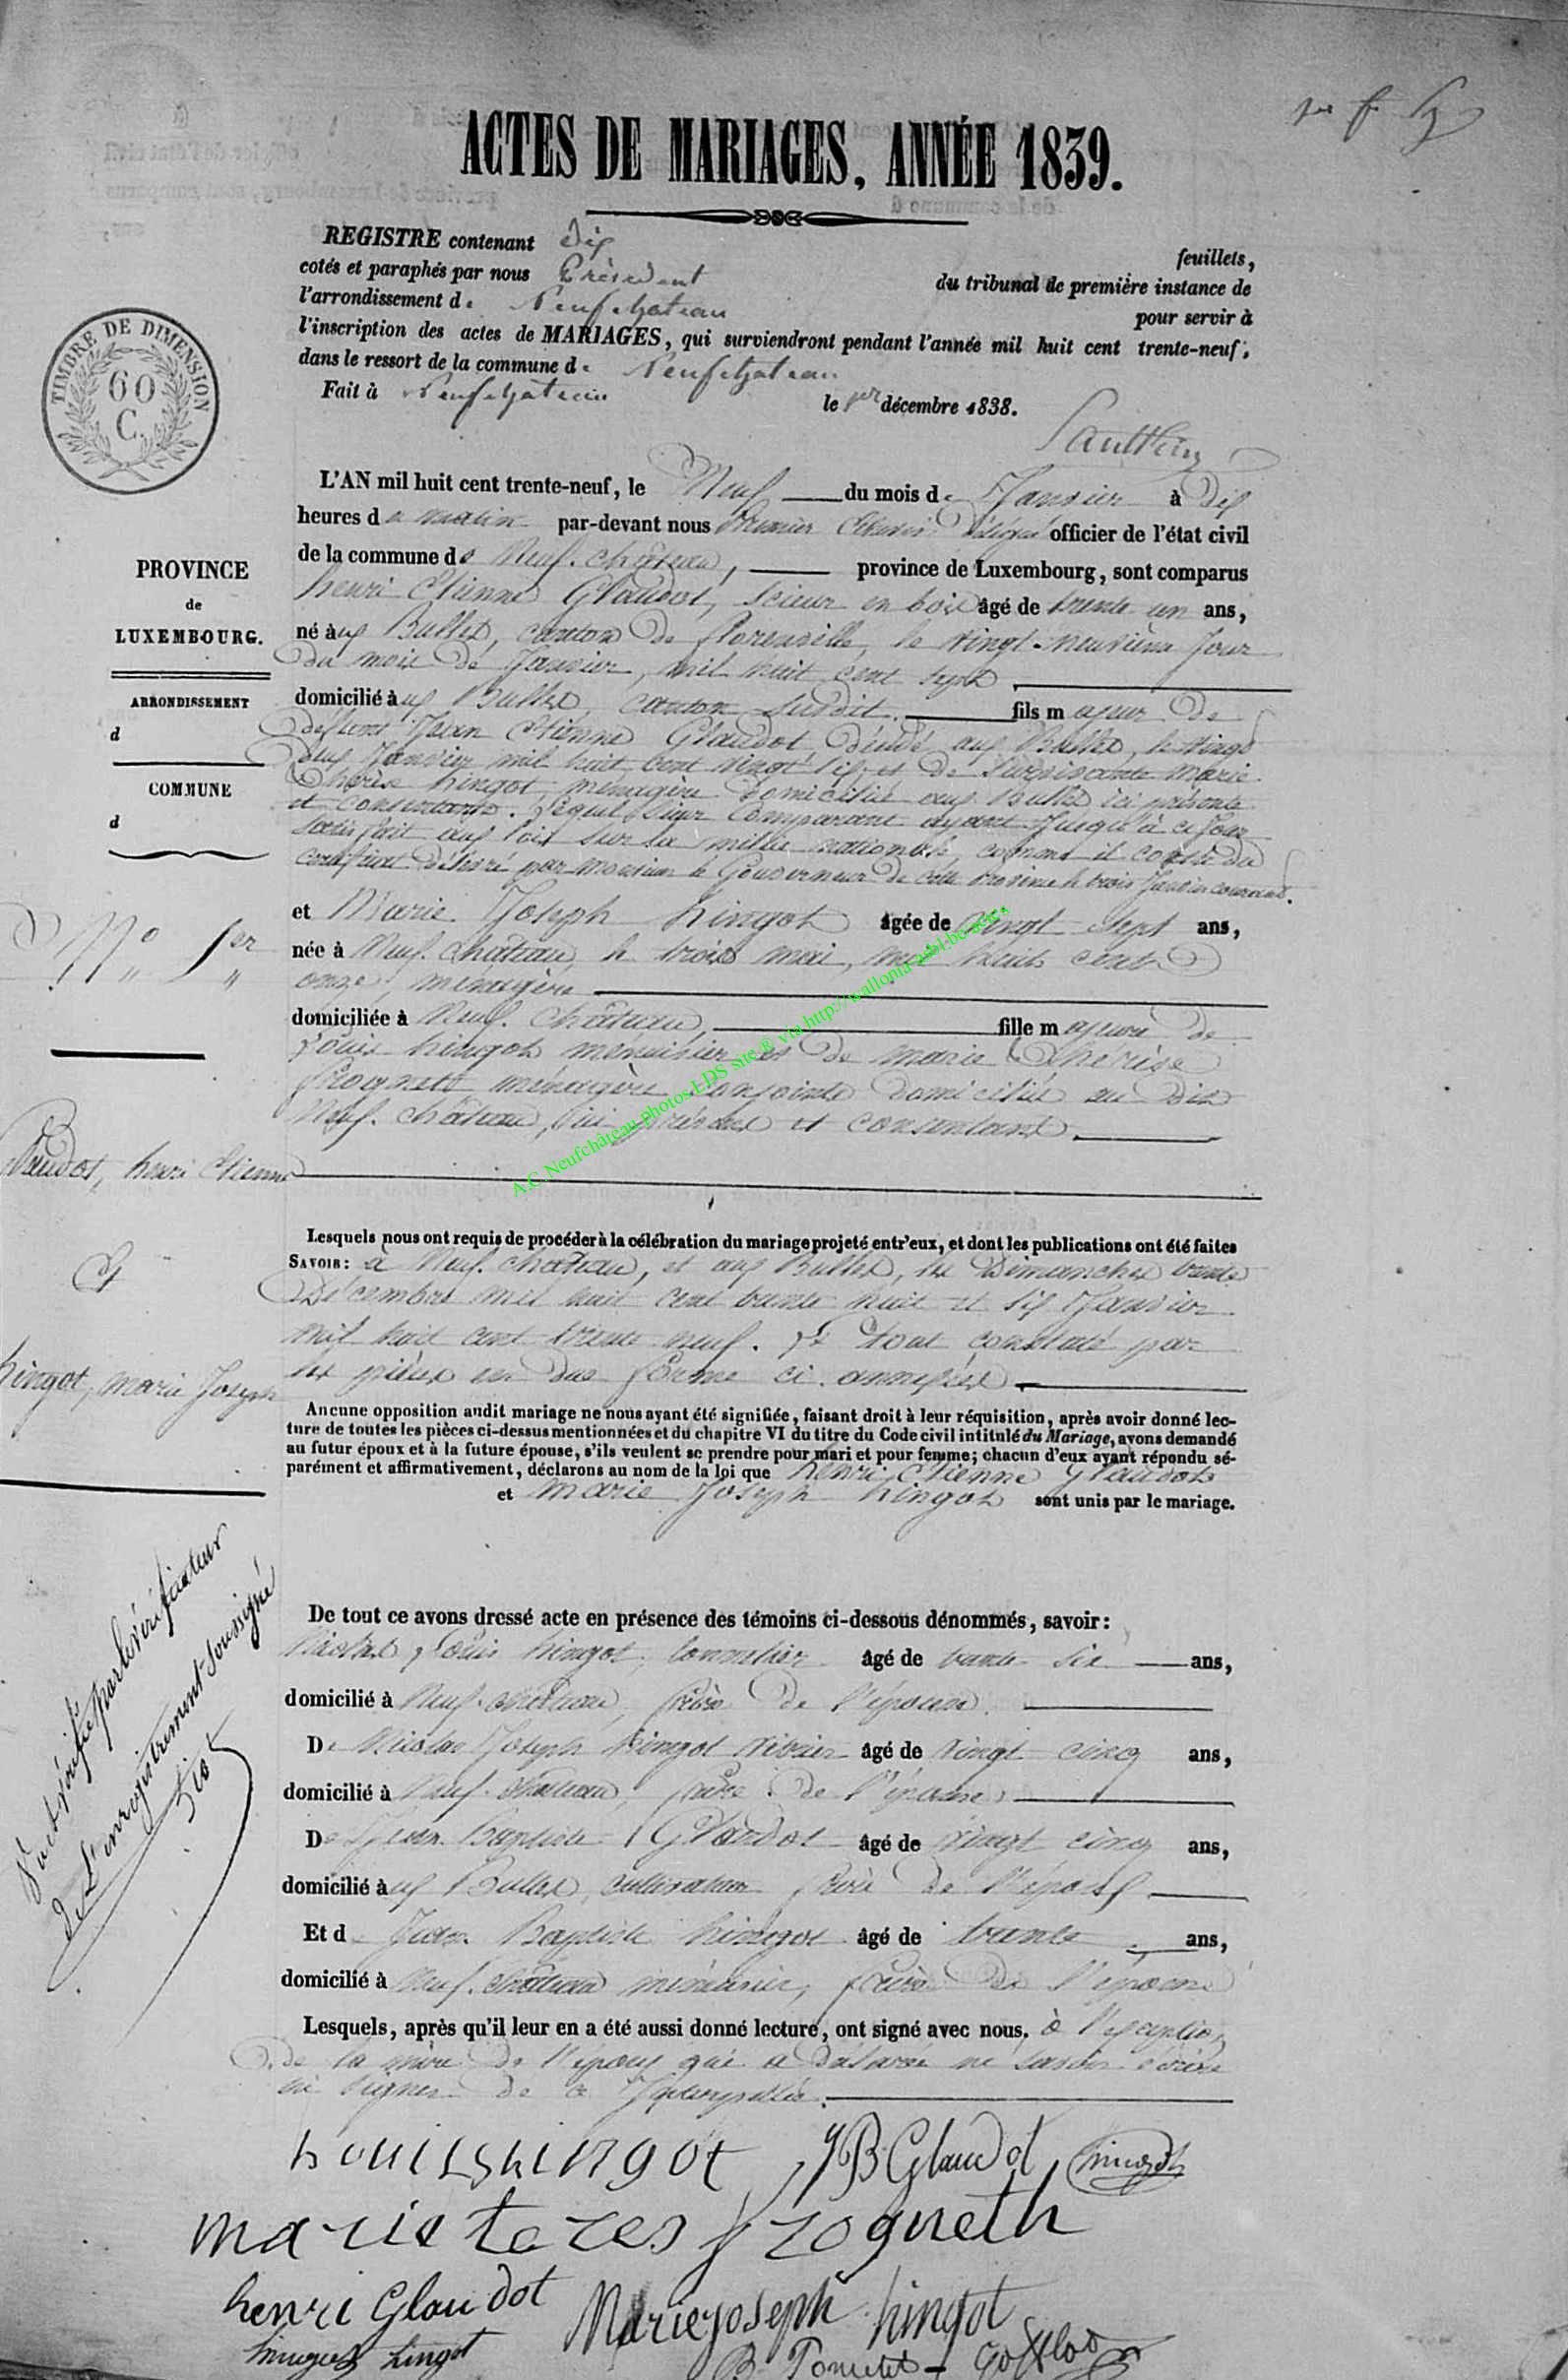 ACTES DE MARIAGES, ANNÉE 1839.
REGISTRE contenant Dix feuillets,
cotés et paraphés par nous Président du tribunal de première instance de
l'arrondissement de Neufchateau pour servir à
l'inscription des actes de MARIAGES, qui surviendront pendant l'année mil huit cent trente-neuf,
dans le ressort de la commune de Neufchateau
Fait à Neufchateau le 1er décembre 1838.
TIMBRE DE DIMENSION
60
C.
L'AN mil huit cent trente-neuf, le Neuf du mois de Janvier à Dix
heures du matin par-devant nous Premier Echevin Délégué officier de l'état civil
de la commune de Neuf-château, province de Luxembourg, sont comparus
henri Etienne Glaudot, Scieur en bois âgé de trente un ans,
né aux Bulles, canton de florenville, le vingt-neuvième Jour
du mois de Janvier, mil huit cent sept
domicilié aux Bulles, canton susdit. fils majeur de
deffunt Jean Etienne Glaudot, décédé aux Bulles, le vingt
deux Janvier mil huit cent vingt six et de Survivante Marie
Thérèse hingot, ménagère domiciliée aux Bulles ici présente
et consentante. Lequel Sieur Comparant ayant Jusqu'à ce Jour
satisfait aux lois sur la milice nationale, comme il conste du
certificat délivré par monsieur le Gouverneur de cette province le trois Janvier courant.
PROVINCE
de
LUXEMBOURG.
ARRONDISSEMENT
d
COMMUNE
d
No 1er
et Marie Joseph hingot âgée de vingt-sept ans,
née à Neuf-château, le trois mai, mil huit cent
onze, ménagère
domiciliée à Neuf-château, fille majeure de
Louis hingot menuisier et de marie Thérèse
frognett ménagère conjoints domiciliés au dit
Neuf-château, ici présens et consentans.
Glaudot, henri Etienne
Et
hingot, marie Joseph
Lesquels nous ont requis de procéder à la célébration du mariage projeté entr'eux, et dont les publications ont été faites
SAVOIR: à Neuf-château, et aux Bulles, les Dimanches trente
Décembre mil huit cent trente huit et six Janvier
mil huit cent trente neuf. Le tout constaté par
les pièces en due forme ci-annexées.
Aucune opposition audit mariage ne nous ayant été signifiée, faisant droit à leur réquisition, après avoir donné lec-
ture de toutes les pièces ci-dessus mentionnées et du chapitre VI du titre du Code civil intitulé du Mariage, avons demandé
au futur époux et à la future épouse, s'ils veulent se prendre pour mari et pour femme; chacun d'eux ayant répondu sé-
parément et affirmativement, déclarons au nom de la loi que henri Etienne Glaudot
et marie Joseph hingot sont unis par le mariage.
De tout ce avons dressé acte en présence des témoins ci-dessous dénommés, savoir:
Nicolas Louis hingot tonnelier âgé de trente six ans,
domicilié à Neuf-château, frère de l'épouse.
De Nicolas Joseph hingot vitrier âgé de vingt cinq ans,
domicilié à Neuf-château, frère de l'épouse
De Jean Baptiste Glaudot âgé de vingt cinq ans,
domicilié aux Bulles, cultivateur frère de l'époux
Et de Jean Baptiste hingot âgé de trente ans,
domicilié à Neuf-château menuisier, frère de l'épouse
Lesquels, après qu'il leur en a été aussi donné lecture, ont signé avec nous. à l'exception
de la mère de l'époux qui a déclaré ne savoir écrire
ni signer de ce Interpellée.
Vu et vérifié par le vérificateur
de l'enregistrement soussigné
Louis hingot JB Glaudot hingot
marie teres frogneth
henri Glaudot Marie joseph hingot
hingot
A.C. Neufchâteau photos LDS site & via http://wallonia-asbl.be